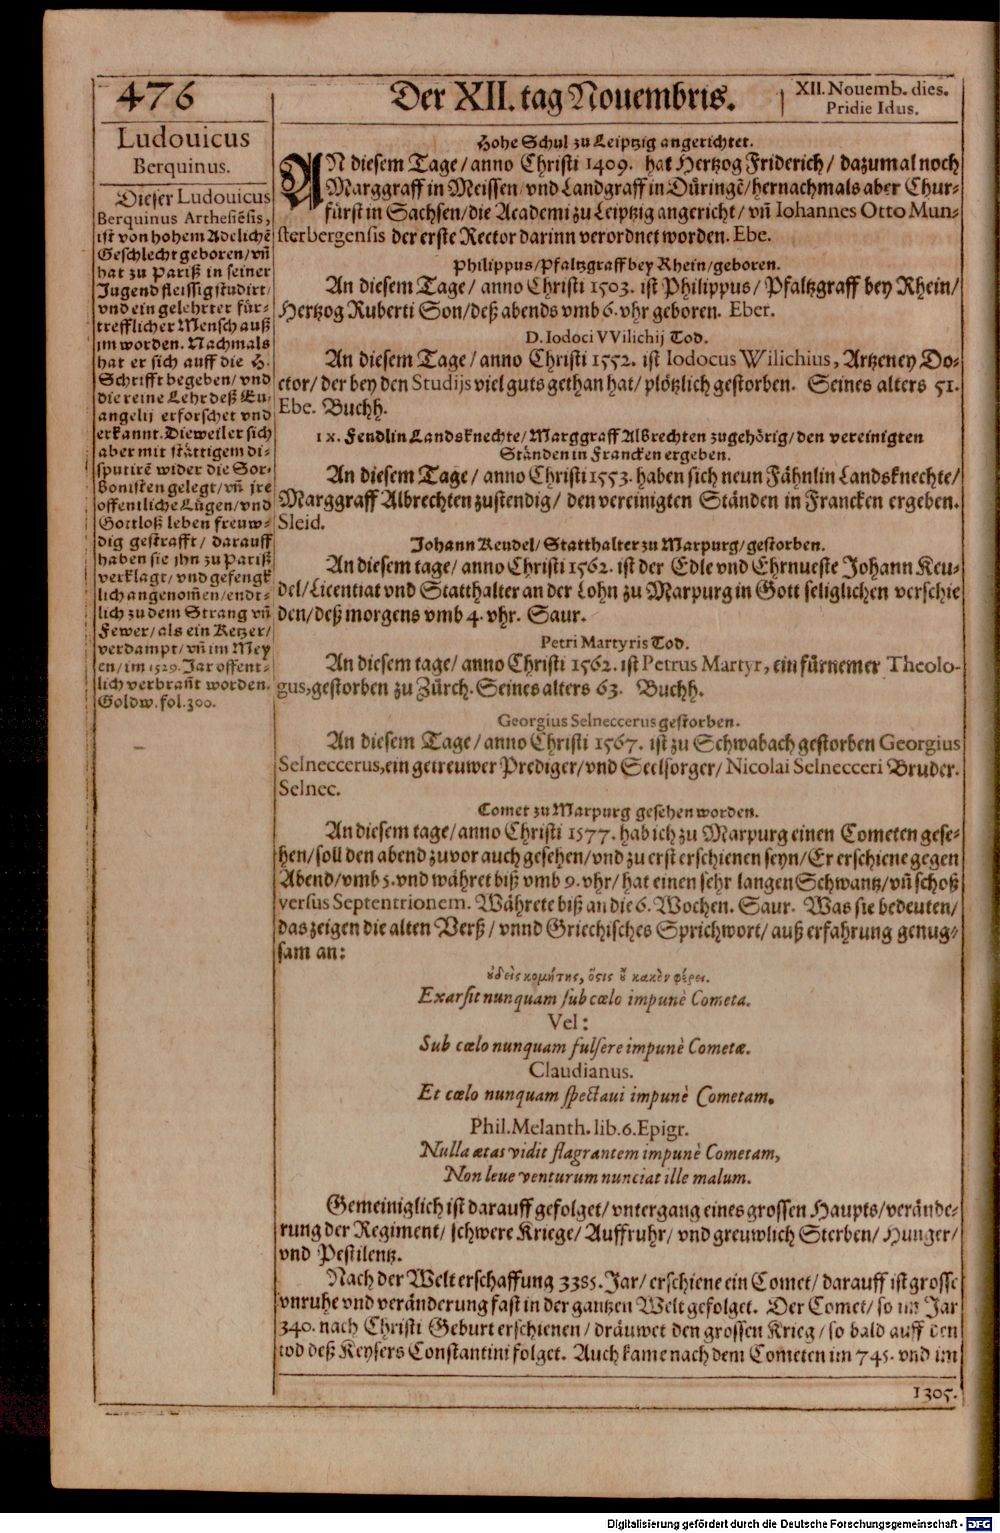 476
Der XII. tag Nouembris.
XII. Nouemb. dies.
Pridie Idus.
Ludouicus
Berquinus.
Dieser Ludouicus
Berquinus Arthesiẽsis,
ist von hohem Adelichẽ
Geschlecht geboren/ vñ
hat zu Pariß in seiner
Jugend fleissig studirt/
vnd ein gelehrter für-
trefflicher Mensch auß
jm worden. Nachmals
hat er sich auff die H.
Schrifft begeben/ vnd
die reine Lehr deß Eu-
angelij erforschet vnd
erkannt. Dieweil er sich
aber mit stättigem di-
sputirẽ wider die Sor-
bonisten gelegt/ vñ jre
offentliche Lügen/ vnd
Gottloß leben freuw-
dig gestrafft/ darauff
haben sie jhn zu Pariß
verklagt/ vnd gefengk
lich angenom̃en/ endt-
lich zu dem Strang vñ
Fewer/ als ein Ketzer/
verdampt/ vñ im Mey
en/ im 1529. Jar offent-
lich verbrañt worden.
Goldw. fol. 300.
Hohe Schul zu Leiptzig angerichtet.
AN diesem Tage/ anno Christi 1409. hat Hertzog Friderich/ dazumal noch
Marggraff in Meissen/ vnd Landgraff in Düringẽ/ hernachmals aber Chur-
fürst in Sachsen/ die Academi zu Leiptzig angericht/ vñ Iohannes Otto Mun-
sterbergensis der erste Rector darinn verordnet worden. Ebe.
Philippus/ Pfaltzgraff bey Rhein/ geboren.
An diesem Tage/ anno Christi 1503. ist Philippus/ Pfaltzgraff bey Rhein/
Hertzog Ruberti Son/ deß abends vmb 6. vhr geboren. Eber.
D. Iodoci VVilichij Tod.
An diesem Tage/ anno Christi 1552. ist Iodocus Wilichius, Artzeney Do-
ctor/ der bey den Studijs viel guts gethan hat/ plötzlich gestorben. Seines alters 51.
Ebe. Buchh.
IX. Fendlin Landsknechte/ Marggraff Albrechten zugehörig/ den vereinigten
Ständen in Francken ergeben.
An diesem Tage/ anno Christi 1553. haben sich neun Fähnlin Landsknechte/
Marggraff Albrechten zustendig/ den vereinigten Ständen in Francken ergeben.
Sleid.
Johann Keudel/ Statthalter zu Marpurg/ gestorben.
An diesem tage/ anno Christi 1562. ist der Edle vnd Ehrnueste Johann Keu-
del/ Licentiat vnd Statthalter an der Lohn zu Marpurg in Gott seliglichen verschie
den/ deß morgens vmb 4. vhr. Saur.
Petri Martyris Tod.
An diesem tage/ anno Christi 1562. ist Petrus Martyr, ein fürnemer Theolo-
gus, gestorben zu Zürch. Seines alters 63. Buchh.
Georgius Selneccerus gestorben.
An diesem Tage/ anno Christi 1567. ist zu Schwabach gestorben Georgius
Selneccerus, ein getreuwer Prediger/ vnd Seelsorger/ Nicolai Selnecceri Bruder.
Selnec.
Comet zu Marpurg gesehen worden.
An diesem tage/ anno Christi 1577. hab ich zu Marpurg einen Cometen gese-
hen/ soll den abend zuvor auch gesehen/ vnd zu erst erschienen seyn/ Er erschiene gegen
Abend/ vmb 5. vnd währet biß vmb 9. vhr/ hat einen sehr langen Schwantz/ vñ schoß
versus Septentrionem. Währete biß an die 6. Wochen. Saur. Was sie bedeuten/
das zeigen die alten Verß/ vnnd Griechisches Sprichwort/ auß erfahrung genug-
sam an:
ȣ̓δεὶς κομήτης, ὅςις ȣ̓ κακὸν φέρει.
Exarsit nunquam sub cœlo impunè Cometa.
Vel:
Sub cœlo nunquam fulsere impunè Cometæ.
Claudianus.
Et cœlo nunquam spectaui impunè Cometam.
Phil. Melanth. lib. 6. Epigr.
Nulla ætas vidit flagrantem impunè Cometam,
Non leue venturum nunciat ille malum.
Gemeiniglich ist darauff gefolget/ vntergang eines grossen Haupts/ verände-
rung der Regiment/ schwere Kriege/ Auffruhr/ vnd greuwlich Sterben/ Hunger/
vnd Pestilentz.
Nach der Welt erschaffung 3385. Jar/ erschiene ein Comet/ darauff ist grosse
vnruhe vnd veränderung fast in der gantzen Welt gefolget. Der Comet/ so im Jar
340. nach Christi Geburt erschienen/ dräuwet den grossen Krieg/ so bald auff den
tod deß Keysers Constantini folget. Auch kame nach dem Cometen im 745. vnd im
1305.
Digitalisierung gefördert durch die Deutsche Forschungsgemeinschaft - DFG